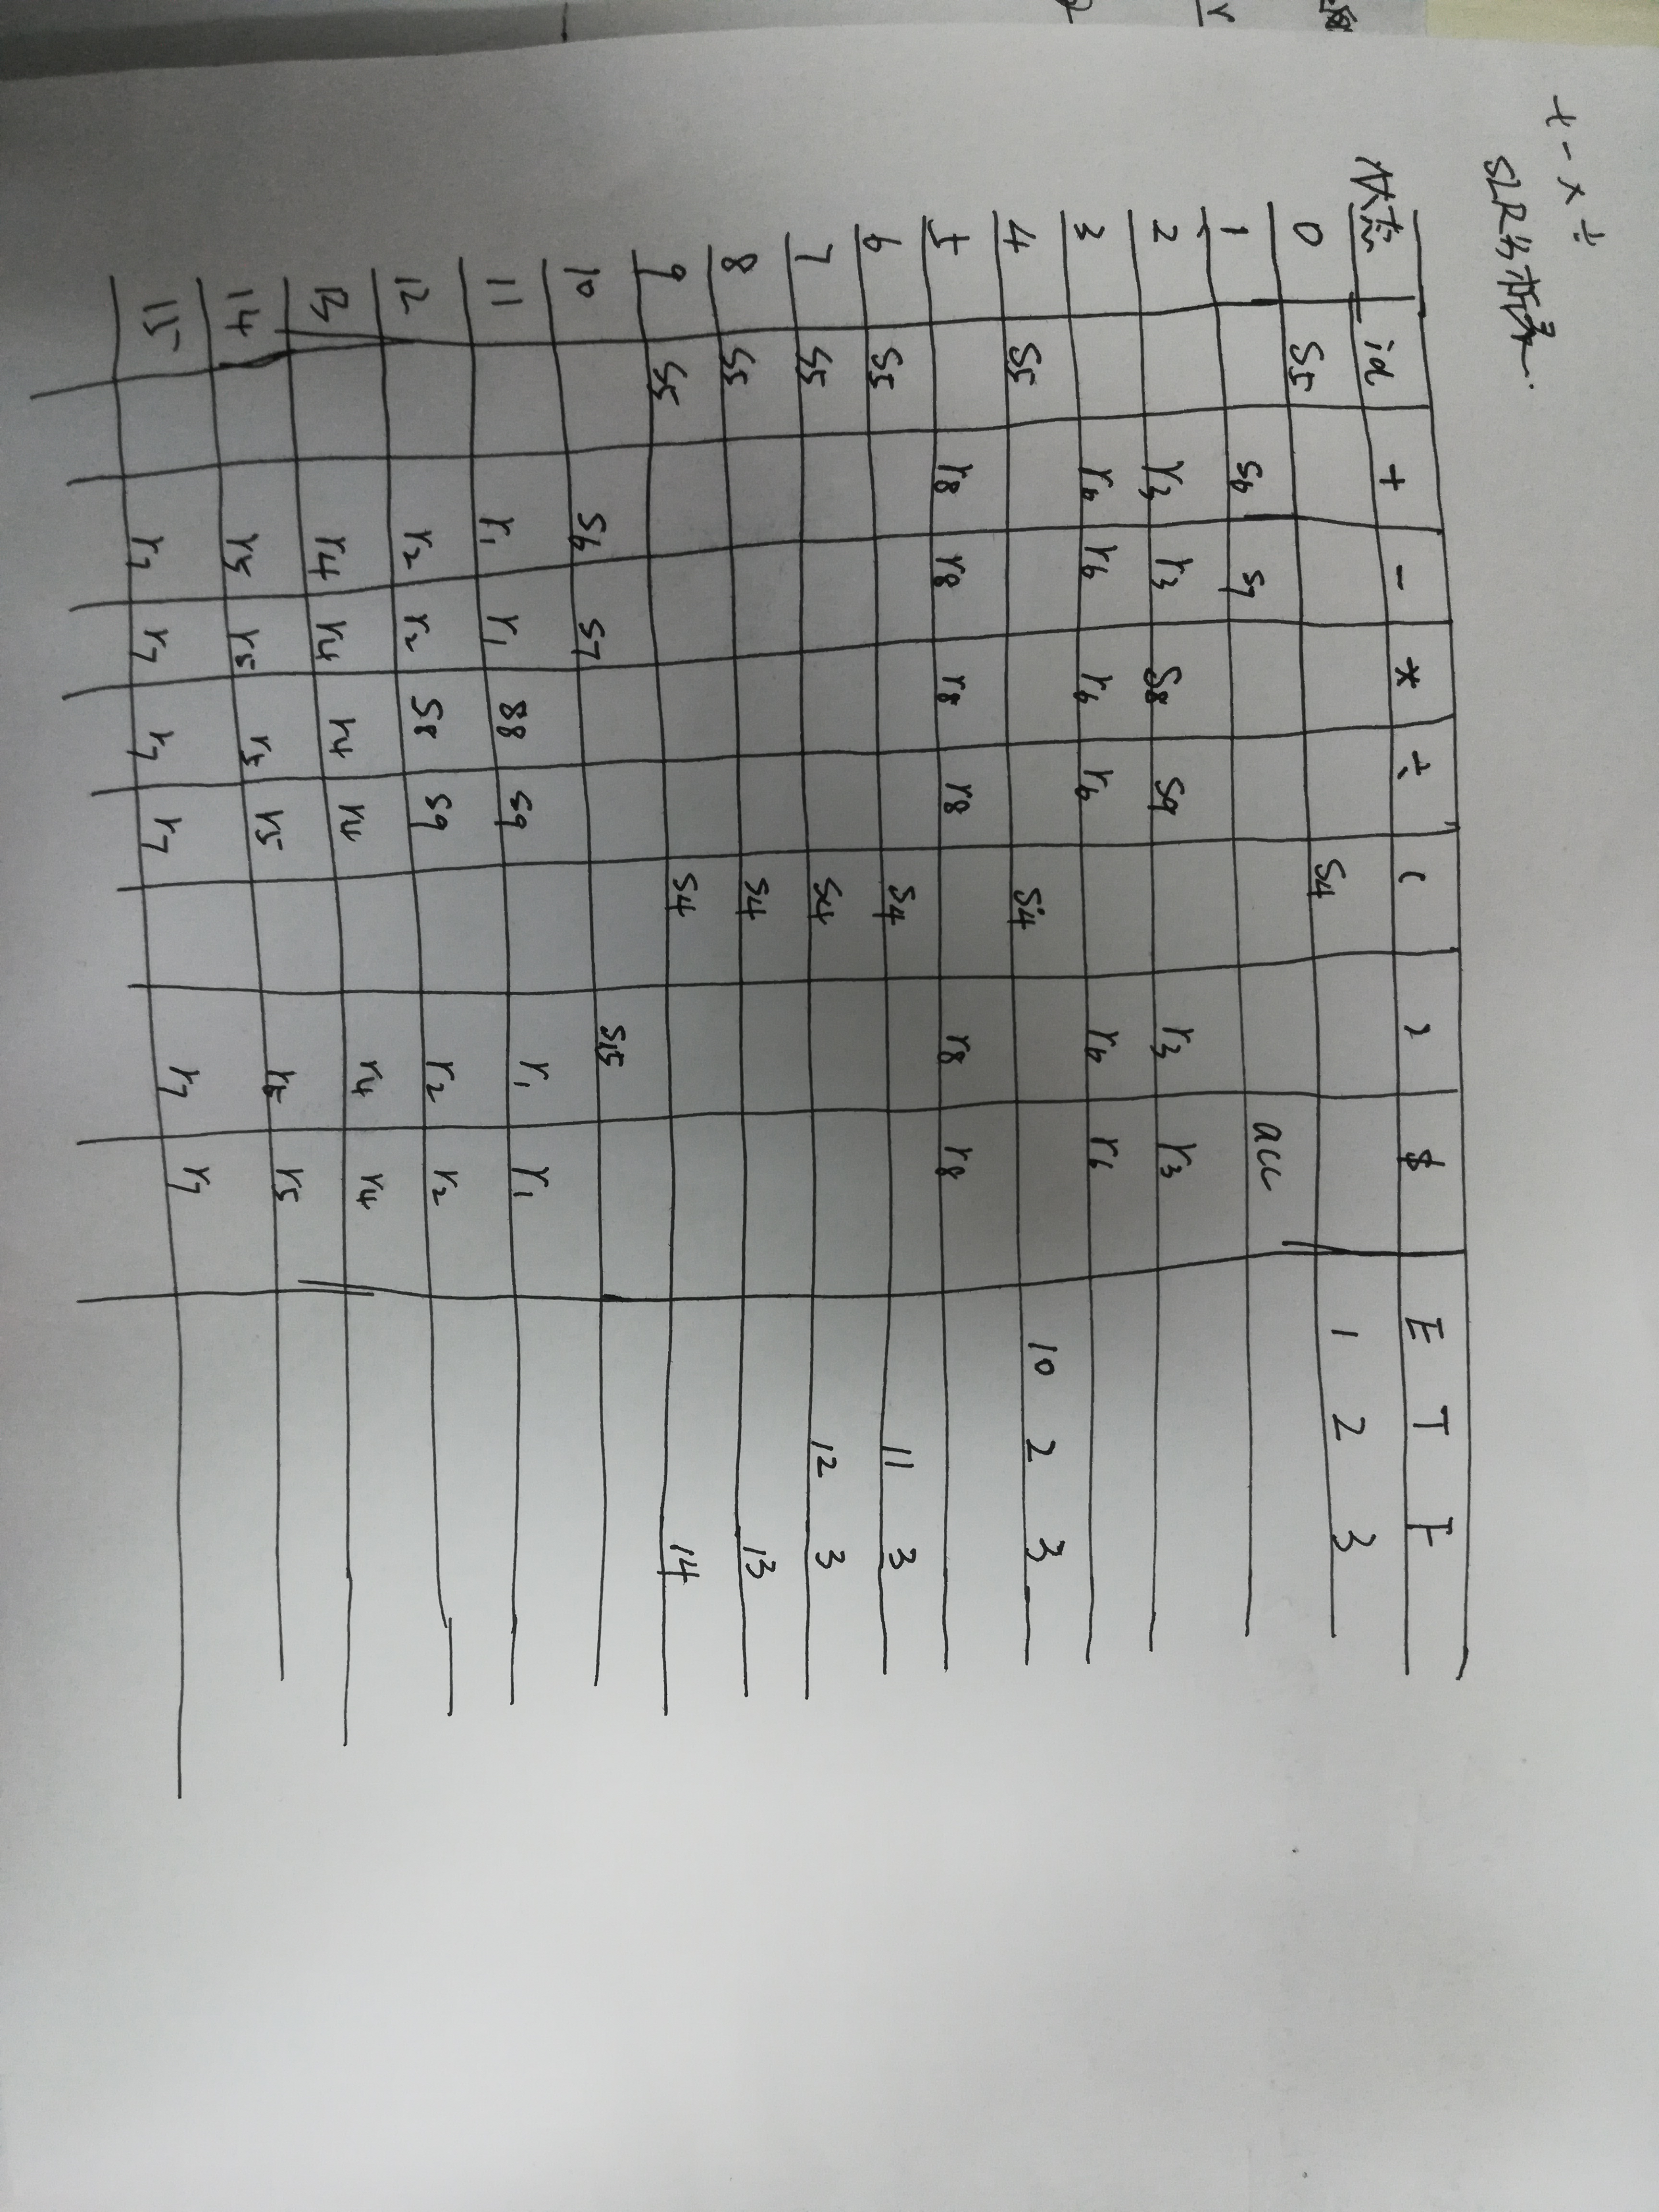 + - × ÷
SLR分析表.
状态 id + - * ÷ ( ) $ E T F
0 S5 S4 1 2 3
1 S6 S7 acc
2 r3 r3 S8 S9 r3 r3
3 r6 r6 r6 r6 r6 r6
4 S5 S4 10 2 3
5 r8 r8 r8 r8 r8 r8
6 S5 S4 11 3
7 S5 S4 12 3
8 S5 S4 13
9 S5 S4 14
10 S6 S7 S15
11 r1 r1 S8 S9 r1 r1
12 r2 r2 S8 S9 r2 r2
13 r4 r4 r4 r4 r4 r4
14 r5 r5 r5 r5 r5 r5
15 r7 r7 r7 r7 r7 r7